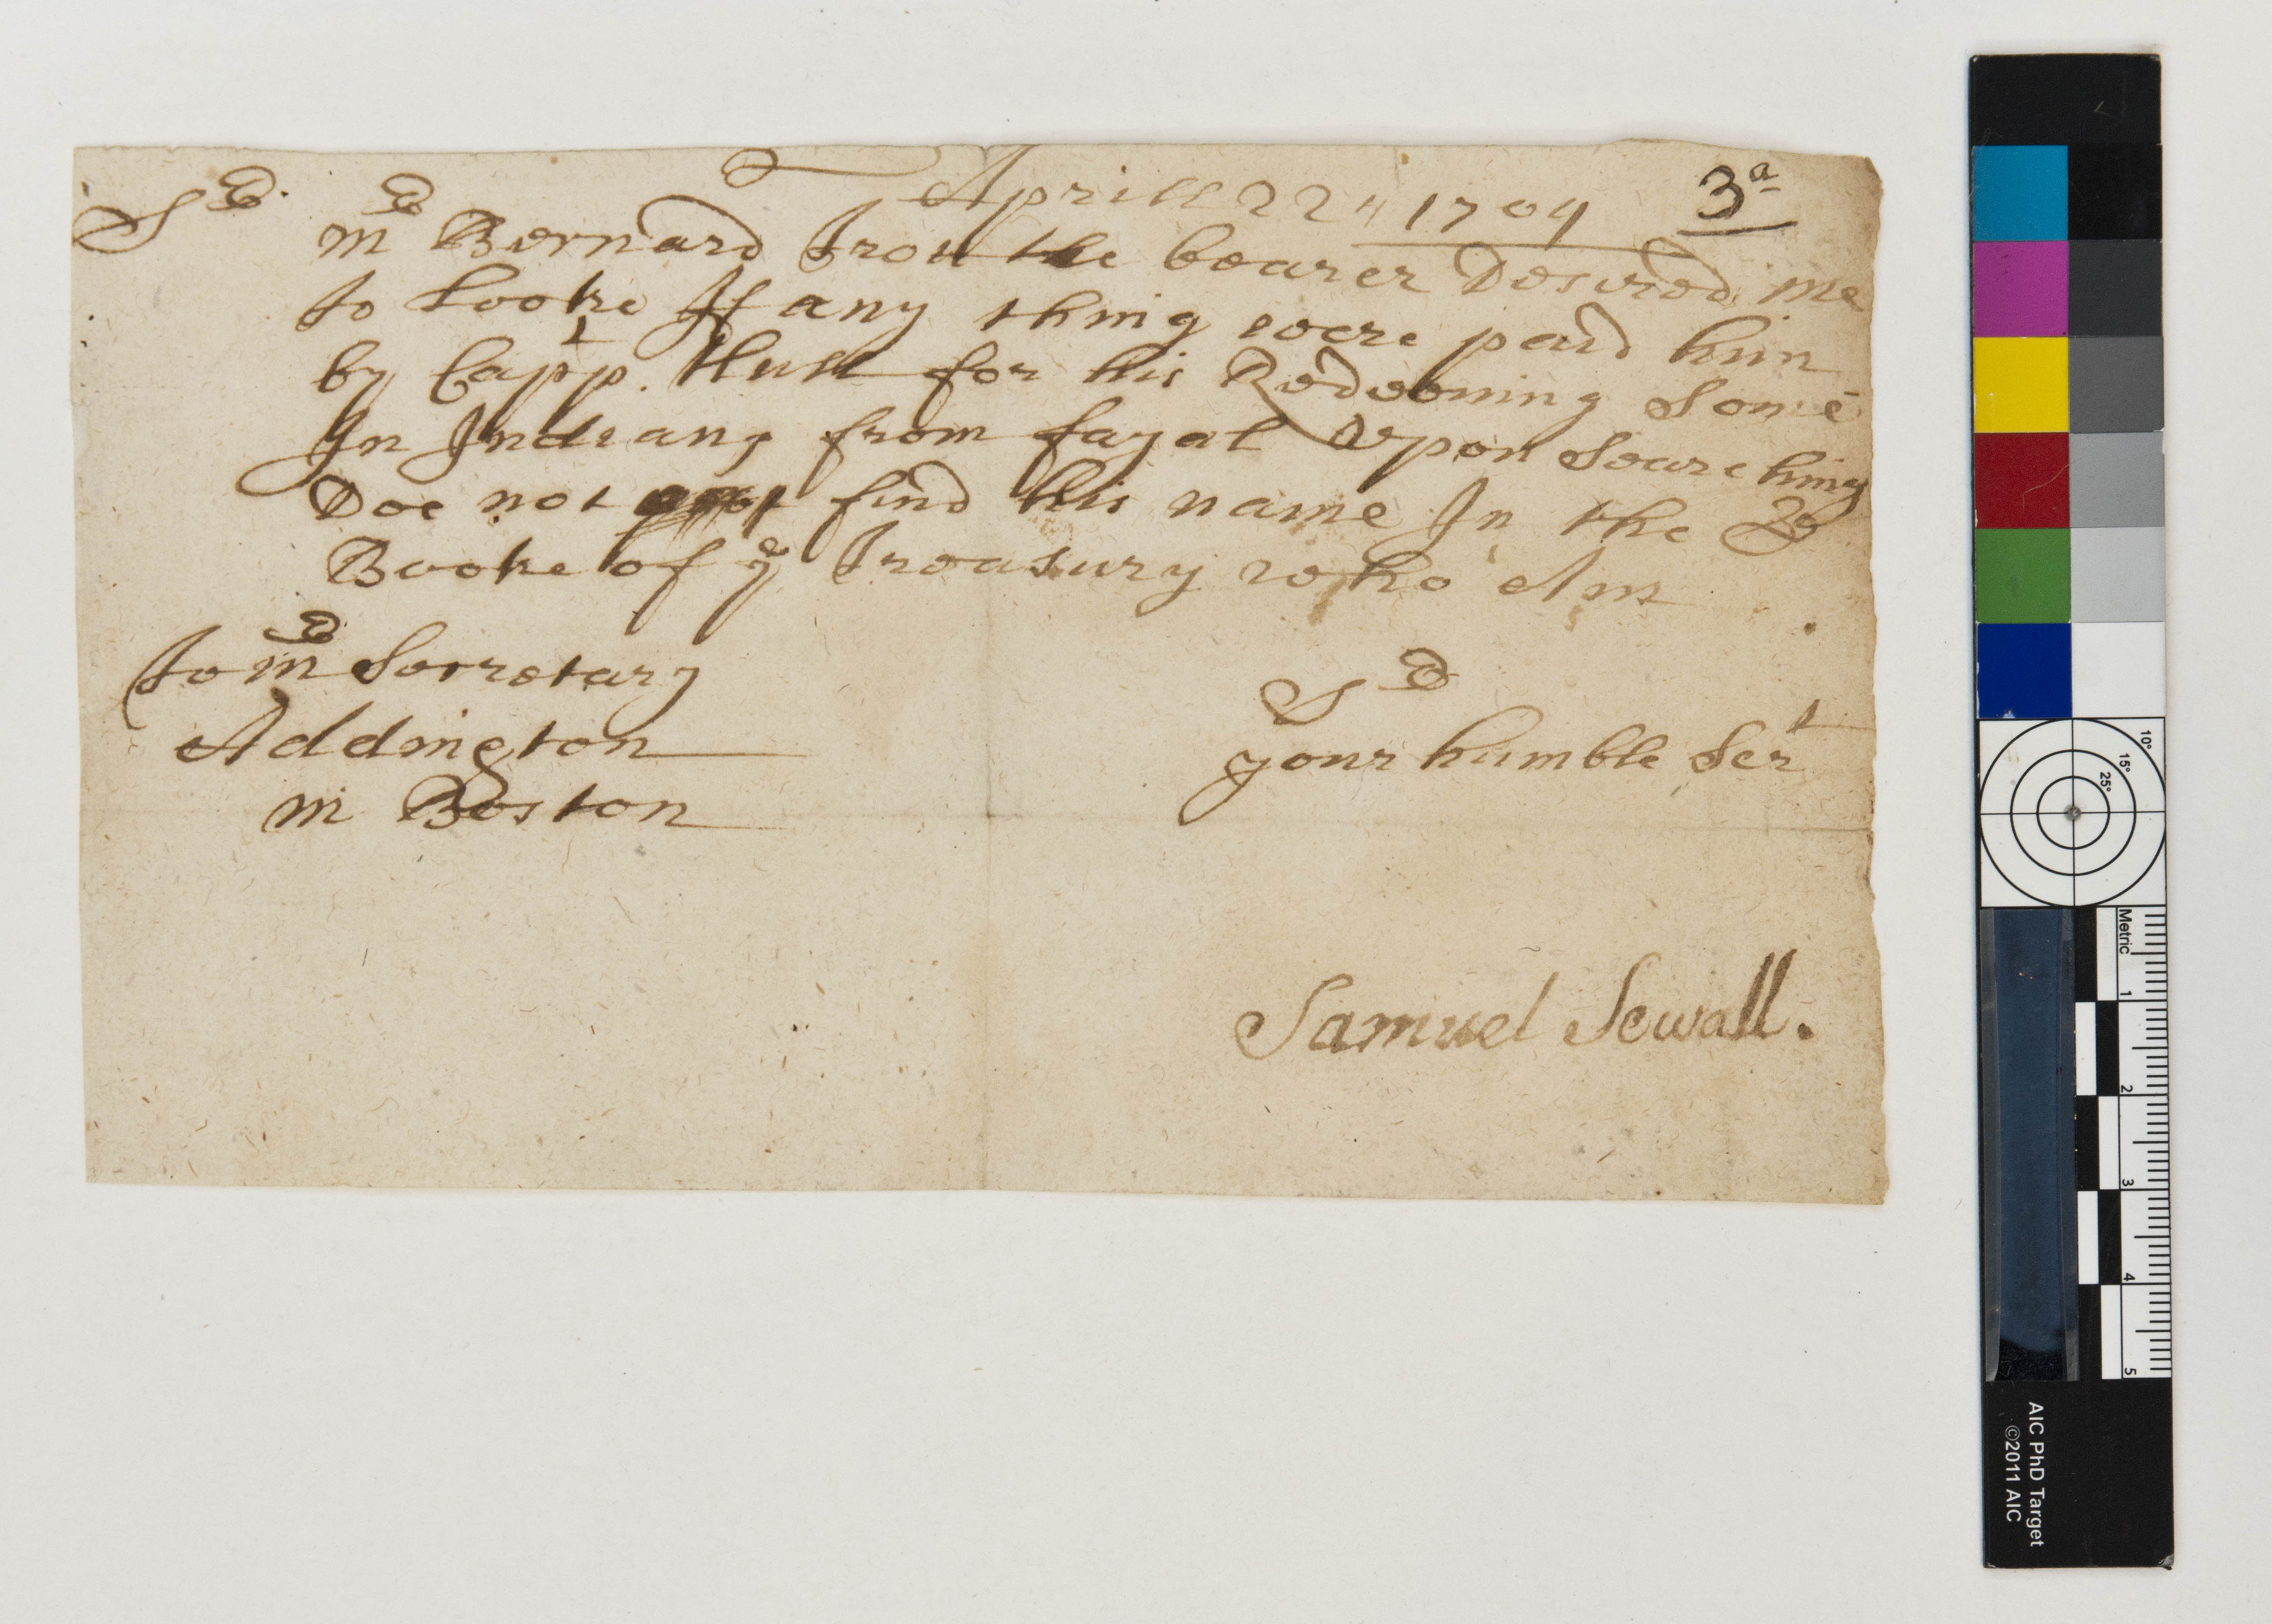 Aprill 22 1704 3a
Sr mr Bernard Trott the bearer Desired me
to Looke If any thing were paid him
by Capt. Hull for his Redeeming Some
In Indians from fayal Vpon Searching
Doe not find his name In the
Booke of ye Treasury who Am
To mr Secretary
Addington
in Boston
Sr
your humble Sert
Samuel Sewall.
10°
15°
25°
Metric
1
2
3
4
5
AIC PhD Target
©2011 AIC